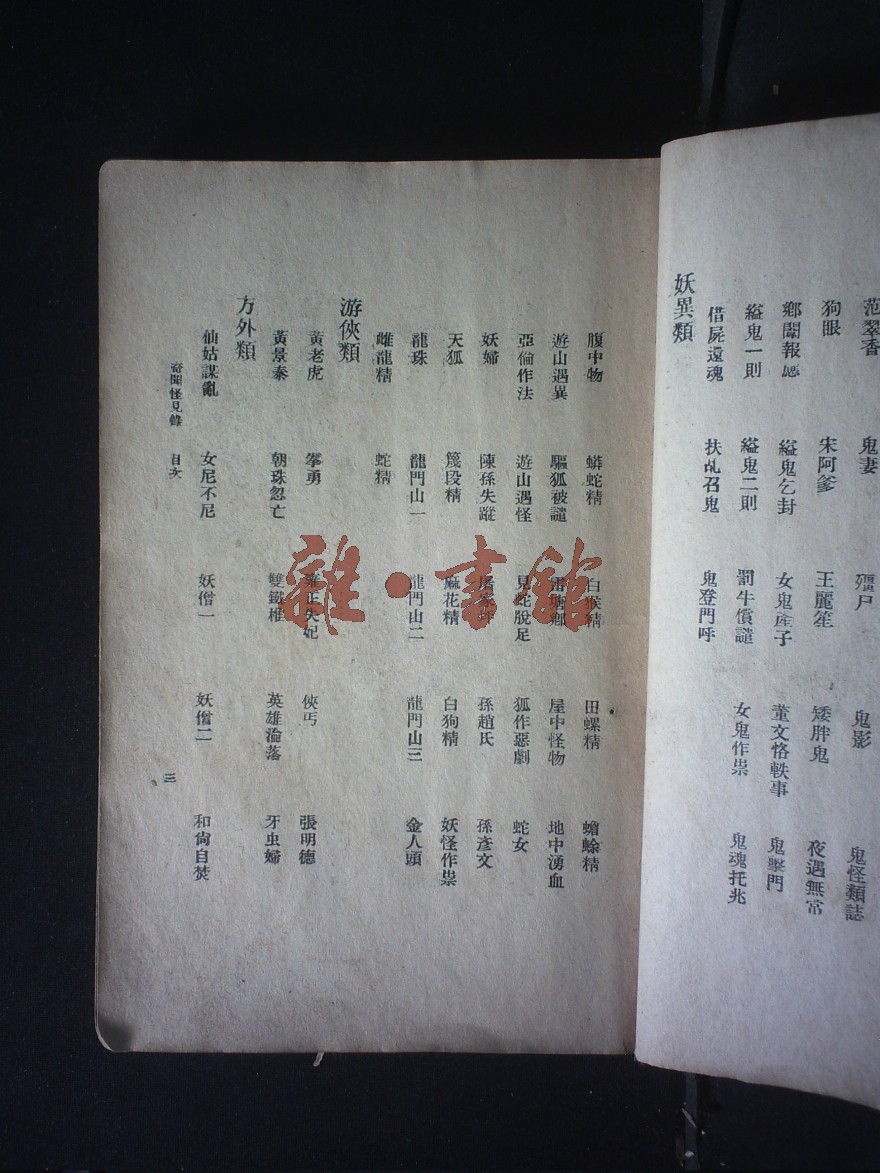 范翠香 鬼妻 殭尸 鬼影 鬼怪類誌
狗眼 宋阿爹 王麗笙 矮胖鬼 夜遇無常
鄉闈報應 縊鬼乞封 女鬼產子 董文恪軼事 鬼擊門
縊鬼一則 縊鬼二則 罰牛償譴 女鬼作祟 鬼魂托兆
借屍還魂 扶乩召鬼 鬼登門呼
妖異類
腹中物 蟒蛇精 白猴精 田螺精 蟾蜍精
遊山遇異 驅狐被譴 屋中怪物 地中湧血
亞倫作法 遊山遇怪 見蛇脫足 狐作惡劇 蛇女
妖婦 陳孫失蹤 孫趙氏 孫彥文
天狐 篾段精 麻花精 白狗精 妖怪作祟
龍珠 龍門山一 龍門山二 龍門山三 金人頭
雌龍精 蛇精
游俠類
黃老虎 拳勇 雍正失妃 俠丐 張明德
黃景泰 朝珠忽亡 雙鐵椎 英雄淪落 牙虫婦
方外類
仙姑謀亂 女尼不尼 妖僧一 妖僧二 和尙自焚
奇聞怪見錄 目次 三
雜·書館